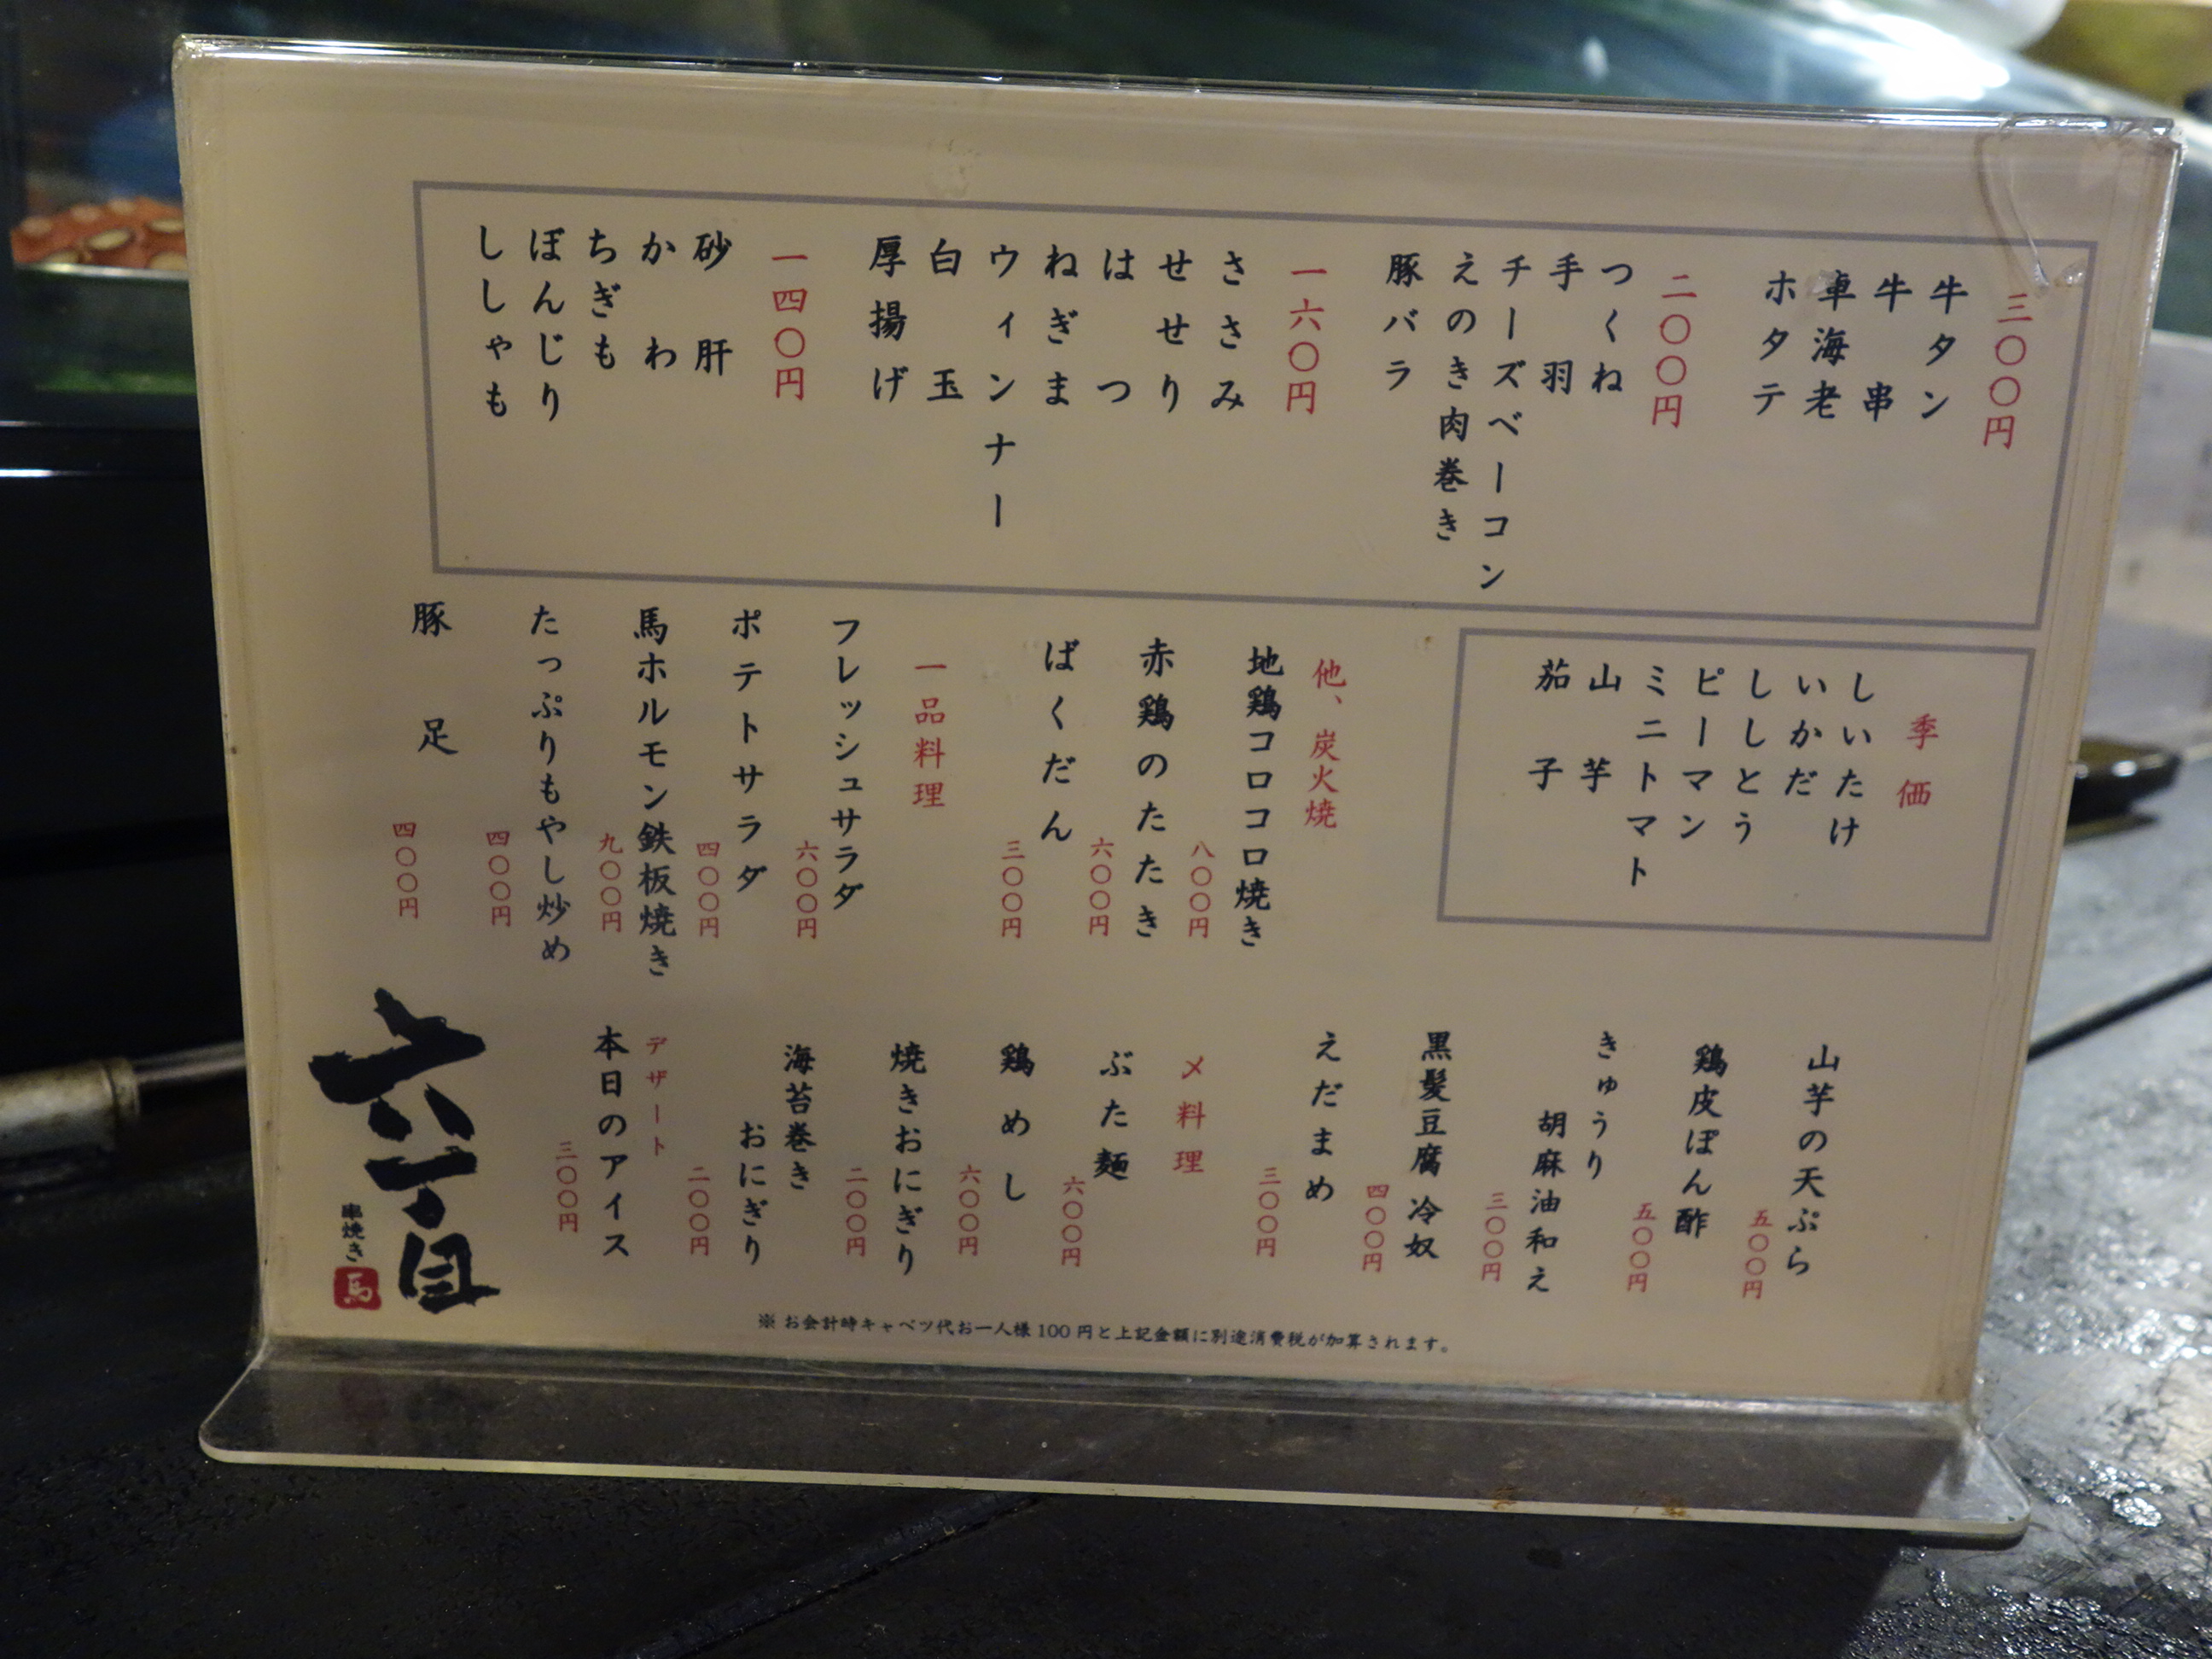 三〇〇円
牛タン
牛串
車海老
ホタテ
二〇〇円
つくね
手羽
チーズベーコン
えのき肉巻き
豚バラ
一六〇円
ささみ
せせり
はつ
ねぎま
ウィンナー
白玉
厚揚げ
一四〇円
砂肝
かわ
ちぎも
ぼんじり
ししゃも
季価
しいたけ
いかだ
ししとう
ピーマン
ミニトマト
山芋
茄子
他、炭火焼
地鶏コロコロ焼き
八〇〇円
赤鶏のたたき
六〇〇円
ばくだん
三〇〇円
一品料理
フレッシュサラダ
六〇〇円
ポテトサラダ
四〇〇円
馬ホルモン鉄板焼き
九〇〇円
たっぷりもやし炒め
四〇〇円
豚足
四〇〇円
山芋の天ぷら
五〇〇円
鶏皮ぽん酢
五〇〇円
きゅうり
胡麻油和え
三〇〇円
黒髪豆腐 冷奴
四〇〇円
えだまめ
三〇〇円
〆料理
ぶた麺
六〇〇円
鶏めし
六〇〇円
焼きおにぎり
二〇〇円
海苔巻き
おにぎり
二〇〇円
デザート
本日のアイス
三〇〇円
六丁目
串焼き
馬
※お会計時キャベツ代お一人様100円と上記金額に別途消費税が加算されます。